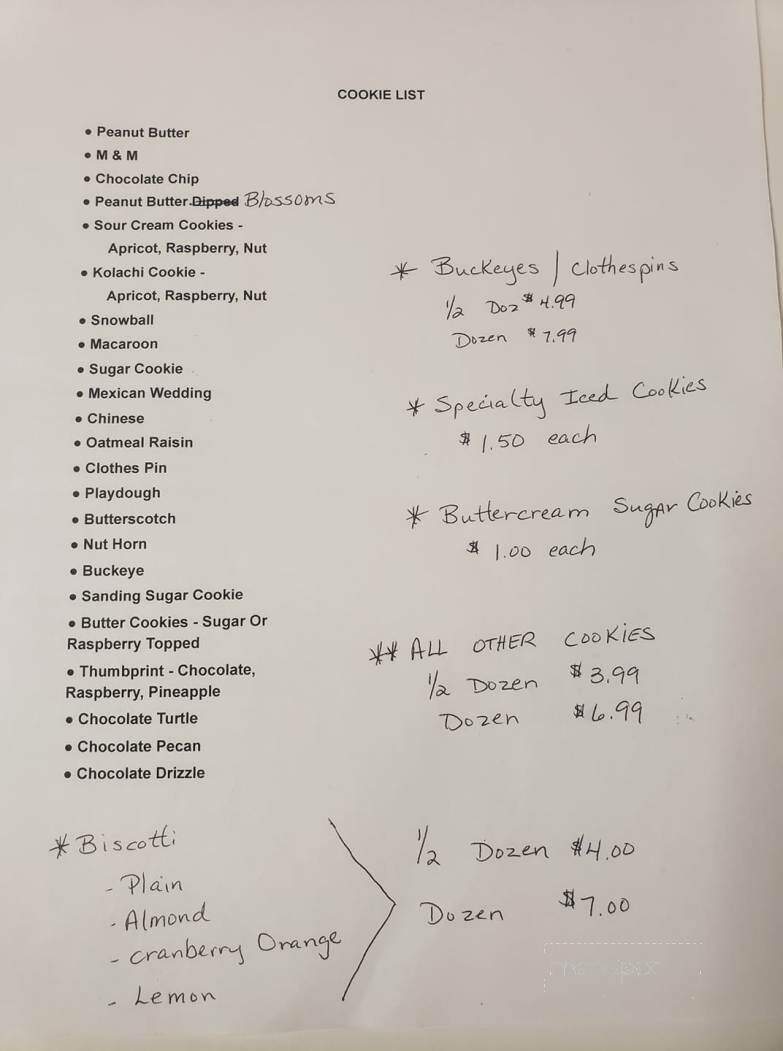 COOKIE LIST
• Peanut Butter
• M & M
• Chocolate Chip
• Peanut Butter Dipped Blossoms
• Sour Cream Cookies -
Apricot, Raspberry, Nut
• Kolachi Cookie -
Apricot, Raspberry, Nut
• Snowball
• Macaroon
• Sugar Cookie
• Mexican Wedding
• Chinese
• Oatmeal Raisin
• Clothes Pin
• Playdough
• Butterscotch
• Nut Horn
• Buckeye
• Sanding Sugar Cookie
• Butter Cookies - Sugar Or
Raspberry Topped
• Thumbprint - Chocolate,
Raspberry, Pineapple
• Chocolate Turtle
• Chocolate Pecan
• Chocolate Drizzle
* Buckeyes / Clothespins
1/2 Doz $4.99
Dozen $7.99
* Specialty Iced Cookies
$1.50 each
* Buttercream Sugar Cookies
$1.00 each
** ALL OTHER COOKIES
1/2 Dozen $3.99
Dozen $6.99
* Biscotti
- Plain
- Almond
- Cranberry Orange
- Lemon
1/2 Dozen $4.00
Dozen $7.00